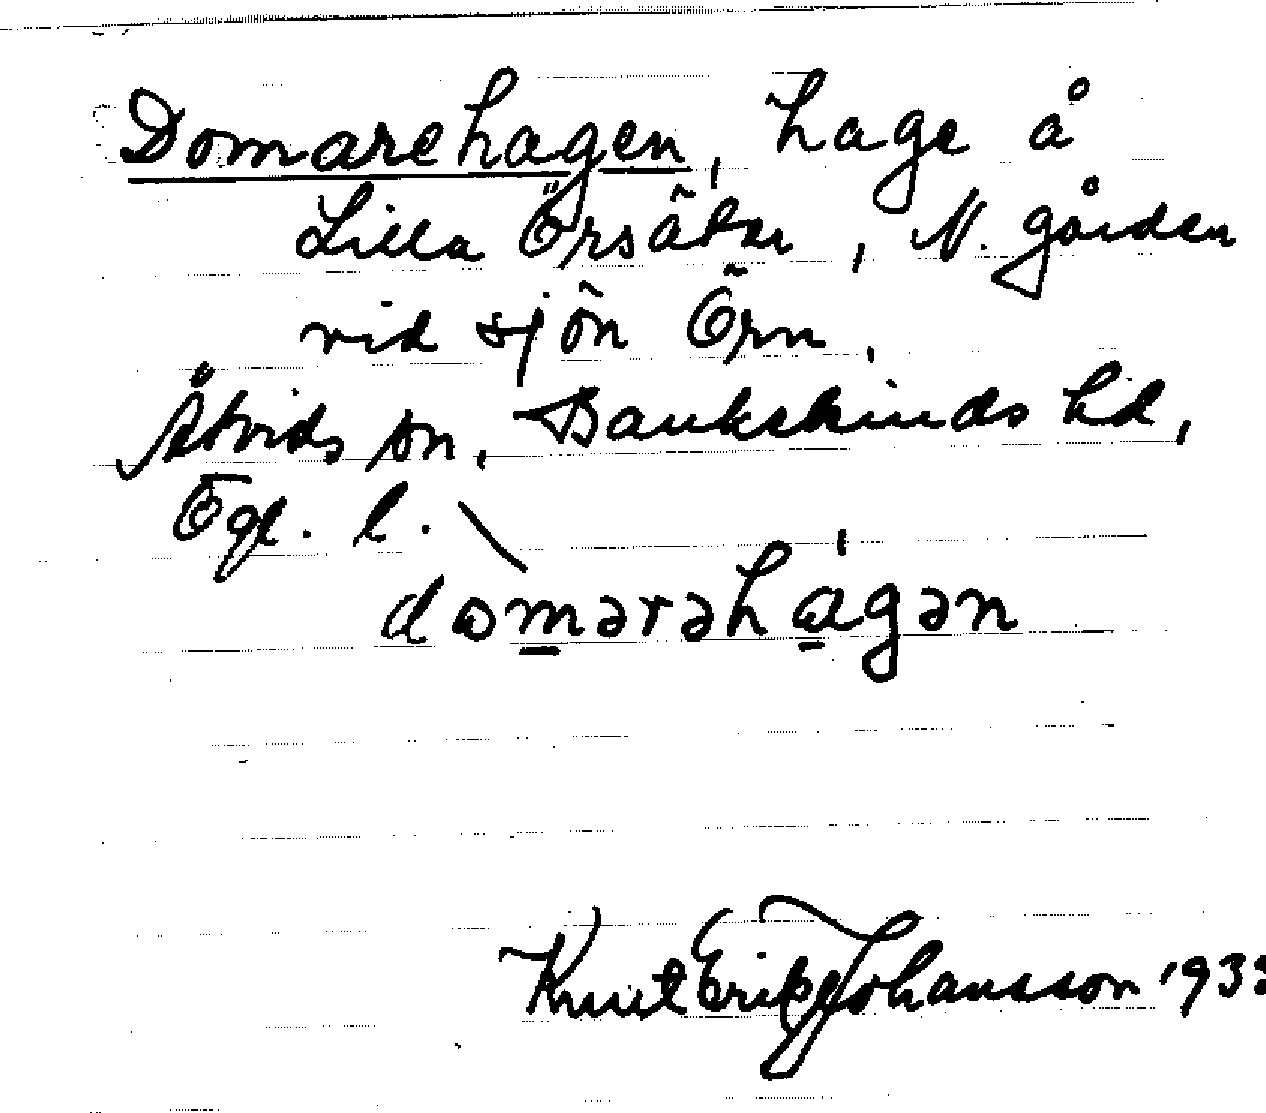 Domarehagen, hage å
Lilla Örsätter, N. gården
vid sjön Örn,
Åtvids sn, Bankekinds hd,
Ögl. l.
domərəhagən
Knut Erik Johansson 193